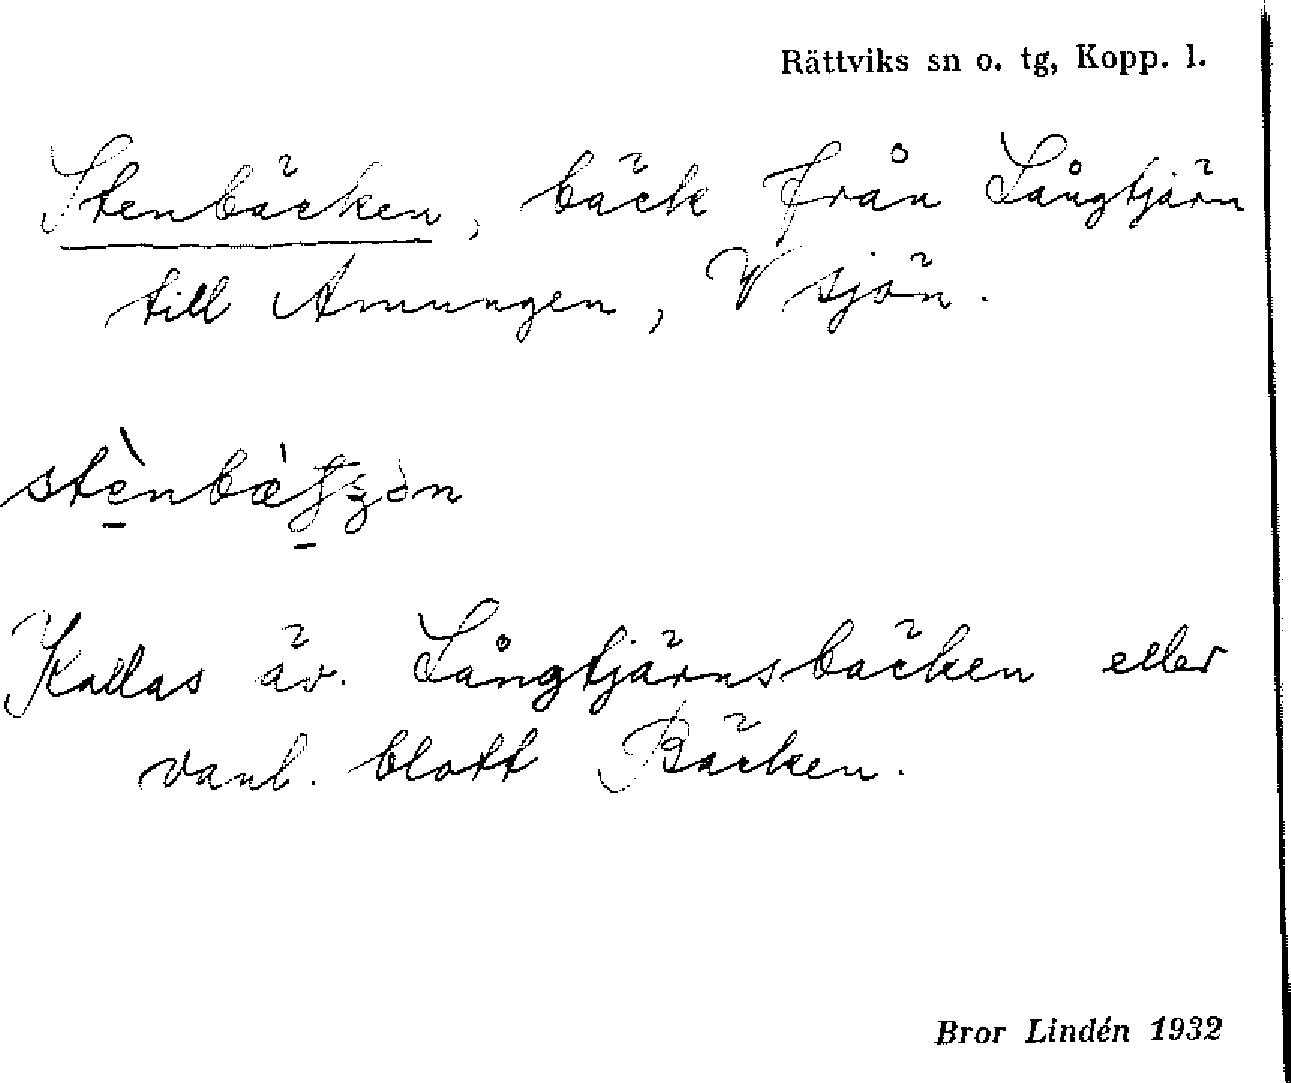 Rättviks sn o. tg, Kopp. l.
Stenbäcken, bäck från Långtjärn
till Amungen, V sjön.
Kallas äv. Långtjärnsbäcken eller
vanl. blott Bäcken.
Bror Lindén 1932